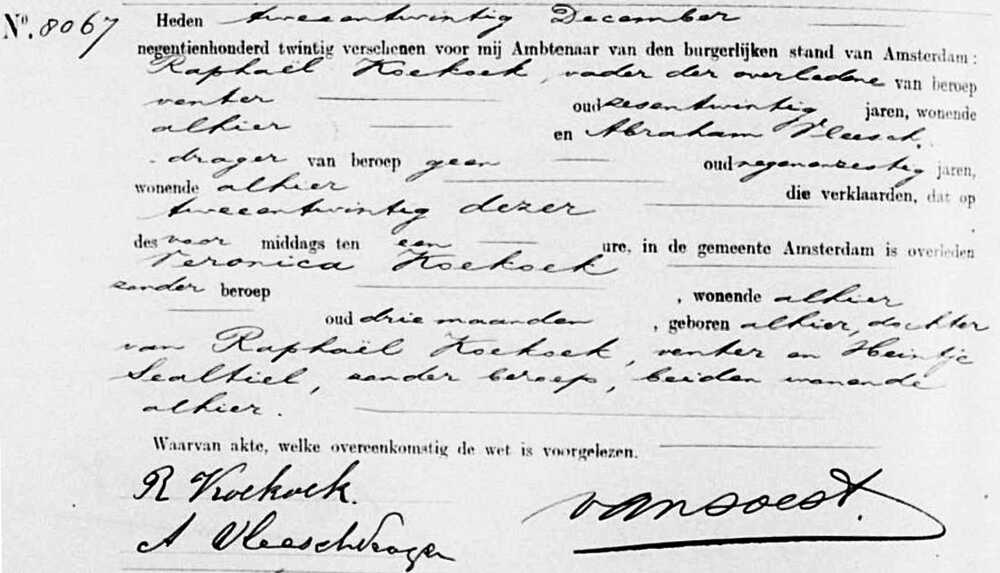 No. 8067
Heden tweeentwintig December
negentienhonderd twintig verschenen voor mij Ambtenaar van den burgerlijken stand van Amsterdam:
Raphaël Koekoek, vader der overledene van beroep
venter oud zesentwintig jaren, wonende
alhier en Abraham Vleesch-
drager van beroep geen oud negenenzestig jaren,
wonende alhier die verklaarden, dat op
tweeentwintig dezer
des voor middags ten een ure, in de gemeente Amsterdam is overleden
Veronica Koekoek
zonder beroep , wonende alhier
oud drie maanden , geboren alhier, dochter
van Raphaël Koekoek, venter en Heintje
Sealtiel, zonder beroep, beiden wonende
alhier.
Waarvan akte, welke overeenkomstig de wet is voorgelezen.
R Koekoek.
A Vleeschdrager
van Soest.